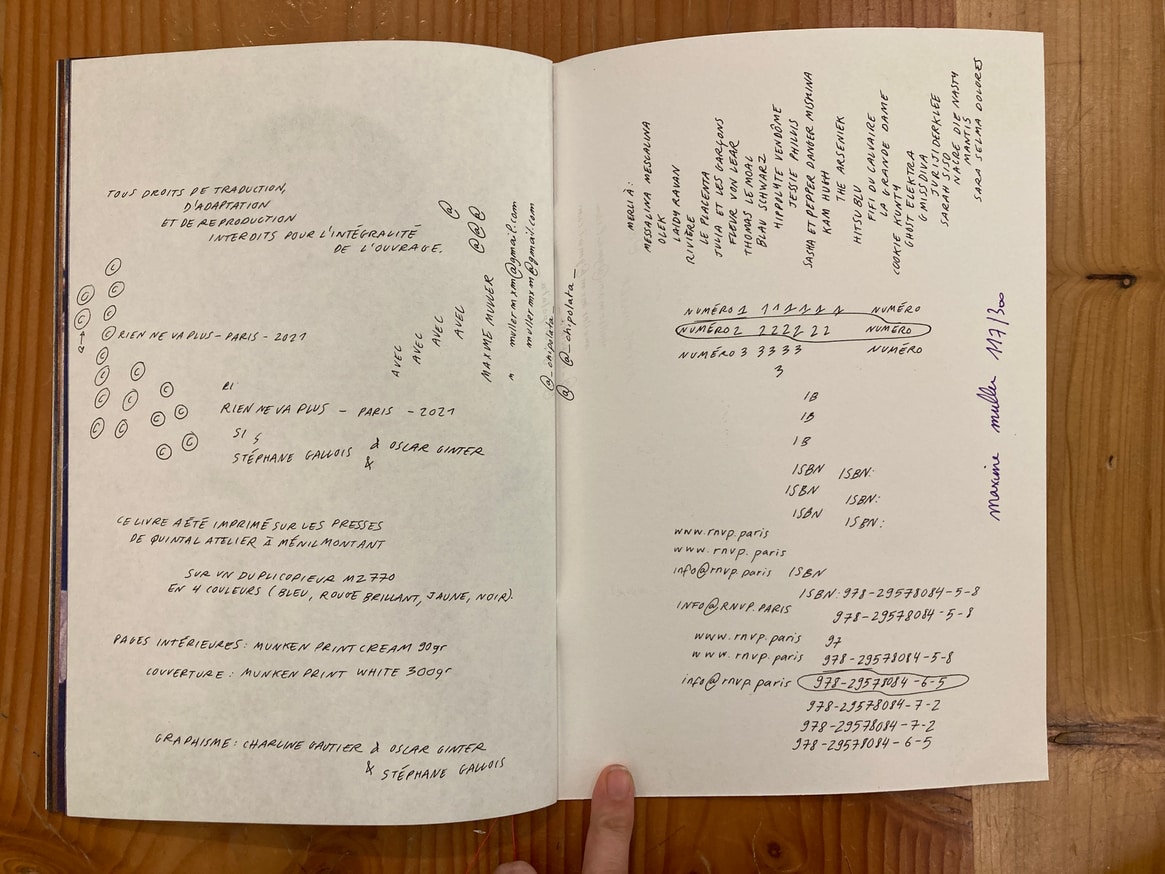 TOUS DROITS DE TRADUCTION,
D'ADAPTATION
ET DE REPRODUCTION
INTERDITS POUR L'INTÉGRALITÉ
DE L'OUVRAGE.
©
©
© ©
© ©
© RIEN NE VA PLUS - PARIS - 2021
©
© ©
© © ©
© © © ©
© ©
AVEC
AVEC
AVEC
AVEC
@
@@
@
MAXIME MULLER
M mullermxm@gmail.com
mullermxm@gmail.com
@_chipolata_
@ @_chipolata_
RI
RIEN NE VA PLUS - PARIS - 2021
SI
STÉPHANE GALLOIS & OSCAR GINTER
&
CE LIVRE A ÉTÉ IMPRIMÉ SUR LES PRESSES
DE QUINTAL ATELIER À MÉNILMONTANT
SUR UN DUPLICOPIEUR MZ 770
EN 4 COULEURS (BLEU, ROUGE BRILLANT, JAUNE, NOIR).
PAGES INTÉRIEURES : MUNKEN PRINT CREAM 90gr
COUVERTURE : MUNKEN PRINT WHITE 300gr
GRAPHISME : CHARLINE GAUTIER & OSCAR GINTER
& STÉPHANE GALLOIS
MERCI À :
MESSALINA MESCALINA
OLEK
LAIDY RAVAN
RIVIÈRE
LE PLACENTA
JULIA ET LES GARÇONS
FLEUR VON LEAR
THOMAS LE MOAL
BLAU SCHWARZ
HIPPOLYTE VENDÔME
JESSIE PHILLIS
SASHA ET PEPPER DANGER MISMINA
KAM HUGH
THE ARSENIEK
HITSU BLU
FIFI DU CALVAIRE
LA GRANDE DAME
COOKIE KUNTY
GHOST ELEKTRA
G MISSDIVA
JURIJI DERKLEE
SARAH SISO
NACRE DIE NASTY
MANTIS
SARA SELMA DOLORES
NUMÉRO 1 1 1 1 1 1 1 NUMÉRO
NUMÉRO 2 2 2 2 2 2 2 NUMÉRO
NUMÉRO 3 3 3 3 3 NUMÉRO
3
IB
IB
IB
ISBN ISBN:
ISBN ISBN:
ISBN ISBN:
www.rnvp.paris
www.rnvp.paris
info@rnvp.paris ISBN
ISBN: 978-29578084-5-8
INFO@RNVP.PARIS 978-29578084-5-8
www.rnvp.paris 97
www.rnvp.paris 978-29578084-5-8
info@rnvp.paris 978-29578084-6-5
978-29578084-7-2
978-29578084-7-2
978-29578084-6-5
maxime muller 117/300